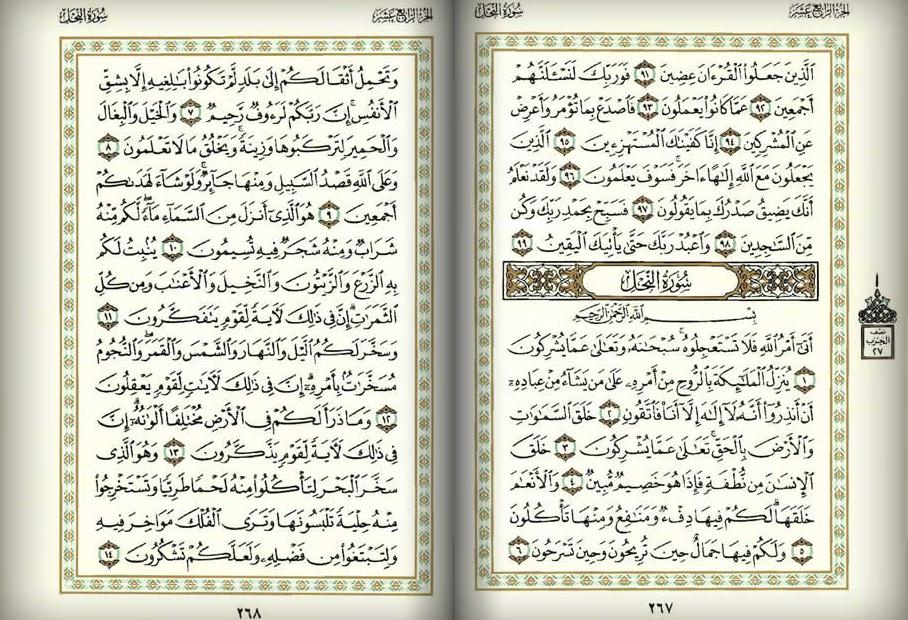 الجزء الرابع عشر
سورة النحل
ٱلَّذِينَ جَعَلُوا۟ ٱلْقُرْءَانَ عِضِينَ ٩١ فَوَرَبِّكَ لَنَسْـَٔلَنَّهُمْ
أَجْمَعِينَ ٩٢ عَمَّا كَانُوا۟ يَعْمَلُونَ ٩٣ فَٱصْدَعْ بِمَا تُؤْمَرُ وَأَعْرِضْ
عَنِ ٱلْمُشْرِكِينَ ٩٤ إِنَّا كَفَيْنَـٰكَ ٱلْمُسْتَهْزِءِينَ ٩٥ ٱلَّذِينَ
يَجْعَلُونَ مَعَ ٱللَّهِ إِلَـٰهًا ءَاخَرَ ۚ فَسَوْفَ يَعْلَمُونَ ٩٦ وَلَقَدْ نَعْلَمُ
أَنَّكَ يَضِيقُ صَدْرُكَ بِمَا يَقُولُونَ ٩٧ فَسَبِّحْ بِحَمْدِ رَبِّكَ وَكُن
مِّنَ ٱلسَّـٰجِدِينَ ٩٨ وَٱعْبُدْ رَبَّكَ حَتَّىٰ يَأْتِيَكَ ٱلْيَقِينُ ٩٩
سُورَةُ النَّحْلِ
بِسْمِ ٱللَّهِ ٱلرَّحْمَـٰنِ ٱلرَّحِيمِ
أَتَىٰٓ أَمْرُ ٱللَّهِ فَلَا تَسْتَعْجِلُوهُ ۚ سُبْحَـٰنَهُۥ وَتَعَـٰلَىٰ عَمَّا يُشْرِكُونَ
١ يُنَزِّلُ ٱلْمَلَـٰٓئِكَةَ بِٱلرُّوحِ مِنْ أَمْرِهِۦ عَلَىٰ مَن يَشَآءُ مِنْ عِبَادِهِۦٓ
أَنْ أَنذِرُوٓا۟ أَنَّهُۥ لَآ إِلَـٰهَ إِلَّآ أَنَا۠ فَٱتَّقُونِ ٢ خَلَقَ ٱلسَّمَـٰوَٰتِ
وَٱلْأَرْضَ بِٱلْحَقِّ ۚ تَعَـٰلَىٰ عَمَّا يُشْرِكُونَ ٣ خَلَقَ
ٱلْإِنسَـٰنَ مِن نُّطْفَةٍ فَإِذَا هُوَ خَصِيمٌ مُّبِينٌ ٤ وَٱلْأَنْعَـٰمَ
خَلَقَهَا ۗ لَكُمْ فِيهَا دِفْءٌ وَمَنَـٰفِعُ وَمِنْهَا تَأْكُلُونَ
٥ وَلَكُمْ فِيهَا جَمَالٌ حِينَ تُرِيحُونَ وَحِينَ تَسْرَحُونَ ٦
نصف
الحزب
٢٧
٢٦٧
الجزء الرابع عشر
سورة النحل
وَتَحْمِلُ أَثْقَالَكُمْ إِلَىٰ بَلَدٍ لَّمْ تَكُونُوا۟ بَـٰلِغِيهِ إِلَّا بِشِقِّ
ٱلْأَنفُسِ ۚ إِنَّ رَبَّكُمْ لَرَءُوفٌ رَّحِيمٌ ٧ وَٱلْخَيْلَ وَٱلْبِغَالَ
وَٱلْحَمِيرَ لِتَرْكَبُوهَا وَزِينَةً ۚ وَيَخْلُقُ مَا لَا تَعْلَمُونَ ٨
وَعَلَى ٱللَّهِ قَصْدُ ٱلسَّبِيلِ وَمِنْهَا جَآئِرٌ ۚ وَلَوْ شَآءَ لَهَدَىٰكُمْ
أَجْمَعِينَ ٩ هُوَ ٱلَّذِىٓ أَنزَلَ مِنَ ٱلسَّمَآءِ مَآءً ۖ لَّكُم مِّنْهُ
شَرَابٌ وَمِنْهُ شَجَرٌ فِيهِ تُسِيمُونَ ١٠ يُنۢبِتُ لَكُم
بِهِ ٱلزَّرْعَ وَٱلزَّيْتُونَ وَٱلنَّخِيلَ وَٱلْأَعْنَـٰبَ وَمِن كُلِّ
ٱلثَّمَرَٰتِ ۗ إِنَّ فِى ذَٰلِكَ لَـَٔايَةً لِّقَوْمٍ يَتَفَكَّرُونَ ١١
وَسَخَّرَ لَكُمُ ٱلَّيْلَ وَٱلنَّهَارَ وَٱلشَّمْسَ وَٱلْقَمَرَ ۖ وَٱلنُّجُومُ
مُسَخَّرَٰتٌۢ بِأَمْرِهِۦٓ ۗ إِنَّ فِى ذَٰلِكَ لَـَٔايَـٰتٍ لِّقَوْمٍ يَعْقِلُونَ
١٢ وَمَا ذَرَأَ لَكُمْ فِى ٱلْأَرْضِ مُخْتَلِفًا أَلْوَٰنُهُۥٓ ۗ إِنَّ
فِى ذَٰلِكَ لَـَٔايَةً لِّقَوْمٍ يَذَّكَّرُونَ ١٣ وَهُوَ ٱلَّذِى
سَخَّرَ ٱلْبَحْرَ لِتَأْكُلُوا۟ مِنْهُ لَحْمًا طَرِيًّا وَتَسْتَخْرِجُوا۟
مِنْهُ حِلْيَةً تَلْبَسُونَهَا وَتَرَى ٱلْفُلْكَ مَوَاخِرَ فِيهِ
وَلِتَبْتَغُوا۟ مِن فَضْلِهِۦ وَلَعَلَّكُمْ تَشْكُرُونَ ١٤
٢٦٨